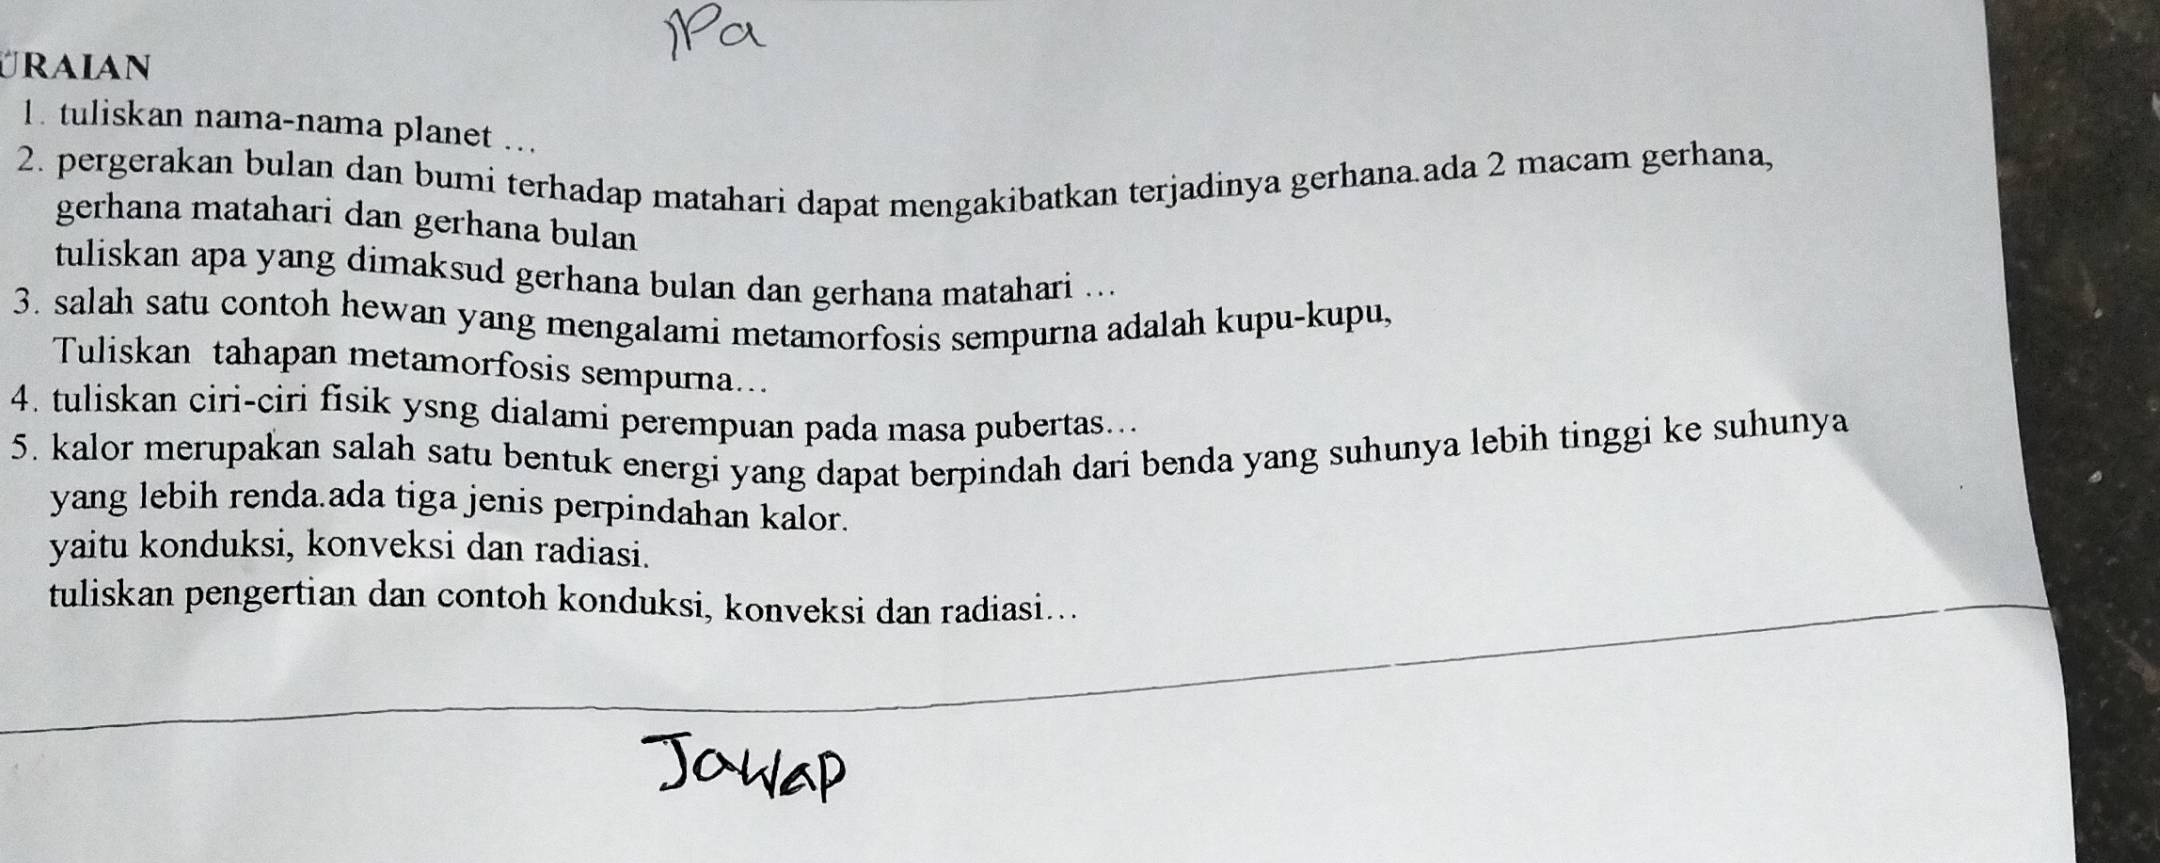 ipa
URAIAN
1. tuliskan nama-nama planet ...
2. pergerakan bulan dan bumi terhadap matahari dapat mengakibatkan terjadinya gerhana.ada 2 macam gerhana,
gerhana matahari dan gerhana bulan
tuliskan apa yang dimaksud gerhana bulan dan gerhana matahari ...
3. salah satu contoh hewan yang mengalami metamorfosis sempurna adalah kupu-kupu,
Tuliskan tahapan metamorfosis sempurna...
4. tuliskan ciri-ciri fisik ysng dialami perempuan pada masa pubertas...
5. kalor merupakan salah satu bentuk energi yang dapat berpindah dari benda yang suhunya lebih tinggi ke suhunya
yang lebih renda.ada tiga jenis perpindahan kalor.
yaitu konduksi, konveksi dan radiasi.
tuliskan pengertian dan contoh konduksi, konveksi dan radiasi...
Jawap